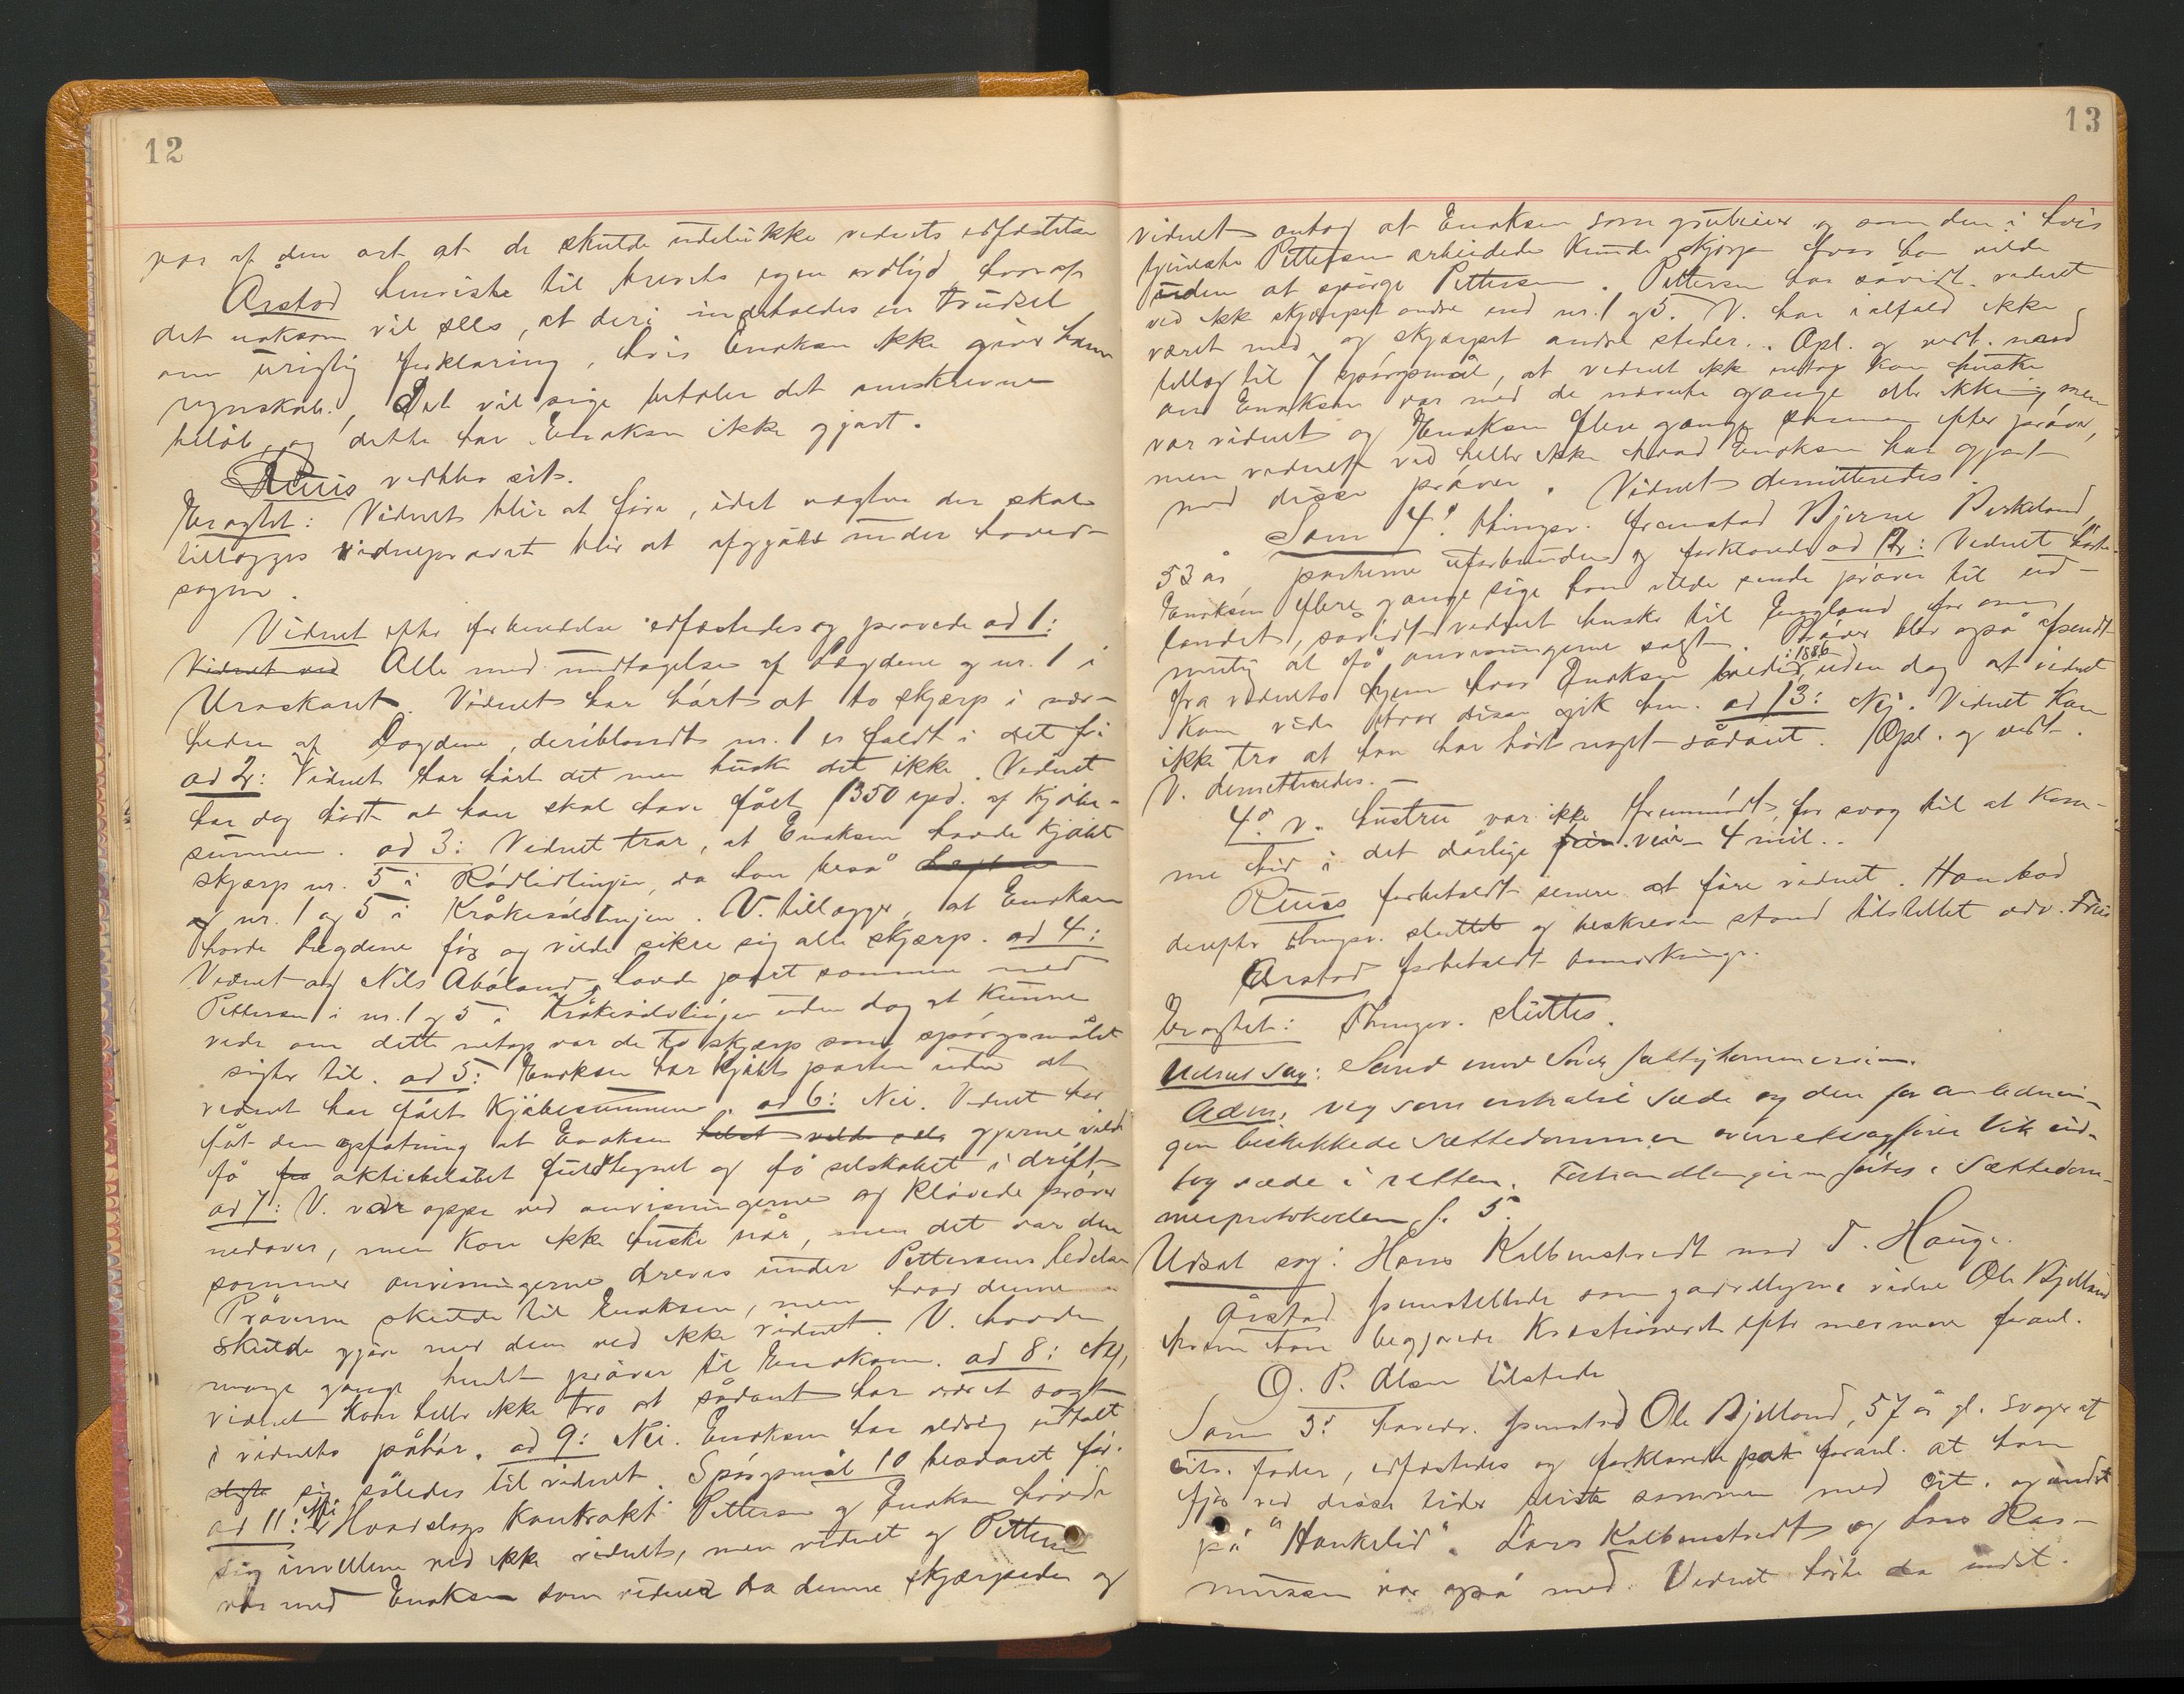 12
var af den art at de skulde udelukke vidnets edfæstelse
Årstad henviste til brevets egen ordlyd, hvoraf
det noksom vil sees, at deri indeholdes en trudsel
om urigtig forklaring, hvis Enoksen ikke giver ham
regnskab, Det vil sige betaler det omskrevne
beløb, og dette har Enoksen ikke gjort.
Ruus vedblev sit.
Eragtet: Vidnet blir at føre, idet vægten der skal
tillægges vidneprovet blir at afgjøre under hoved-
sagen.
Vidnet efter forberedelse edfæstedes og provede ad 1:
Vidnet ved Alle med undtagelse af Dagdene og nr. 1 i
Uraskaret. Vidnet har hørt at to skjærp i nær-
heden af Dagdene, deriblandt nr. 1 er faldt i det fri
ad 2: Vidnet har hørt det men husk det ikke. Vidnet
har dog hørt at han skal have fået 1350 spd. af kjøbe-
summen. ad 3: Vidnet tror, at Enoksen havde kjøbt
skjærp nr. 5 i Rødlidlinjen, da han beså
af nr. 1 og 5 i Kråkeidslinjen. V. tillægger, at Enoksen
havde Dagdene før og vilde sikre sig alle skjærp. ad 4:
Vidnet og Nils Abøland havde part sammen med
Pettersen i nr. 1 og 5 i Kråkeidslinjen uden dog at kunne
vide om dette netop var de to skjærp som spørgsmålet
sigter til. ad 5: Enoksen har kjøbt parten uden at
vidnet har fået kjøbesummen. ad 6: Nei. Vidnet har
fåt den opfatning at Enoksen helst vilde gjerne vilde
få fra aktiebeløbet fuldtegnet og få selskabet i drift
ad 7: V. var oppe ved anvisningerne og kløvede prøver
nedover, men kan ikke huske når, men det var den
sommer anvisningerne dreves under Pettersens ledelse
Prøverne skulde til Enoksen, men hvad denne
skulde gjøre med dem ved ikke vidnet. V. havde
mange gange hentet prøver til Enoksen. ad 8: Nej,
vidnet kan heller ikke tro at sådant har været sagt
i vidnets påhør. ad 9: Nei. Enoksen har aldrig udtalt
sig således til vidnet. Spørgsmål 10 besvaret før.
ad 11: Nei Hvadslags kontrakt Pettersen og Enoksen havde
sig imellem ved ikke vidnet, men vidnet og Pettersen
var med Enoksen som vidner da denne skjærpede og
13
vidnet antog at Enoksen som grubeeier og som den i hvis
tjeneste Pettersen arbeidede kunde skjærpe hvor han vilde
uden at spørge Pettersen. Pettersen har såvidt vidnet
ved ikk skjærpet andre end nr. 1 og 5. V. har ialfald ikke
været med og skjærpet andre steder. Opl. og vedt. med
tillæg til 7 spørgsmål, at vidnet ikk netop kan huske
om Enoksen var med de nævnte gange eller ikke, men
var vidnet og Enoksen flere gange sammen efter prøver,
men vidnet ved heller ikke hvad Enoksen har gjort
med disse prøver. Vidnet demitteredes.
Som 4d. thingsv. fremstod Bjerne Birkeland,
53 år, parterne uforbunden og forklarede ad 12: Vidnet hørte
Enoksen flere gange sige han vilde sende prøver til ud-
landet, såvidt vidnet husker til England for om
mulig at få anvisningerne solgt. Prøver blev også afsendt
fra vidnets hjem hvor Enoksen boede i 1886, uden dog at vidnet
kan vide hvor disse gik hen. ad 13: Nej. Vidnet kan
ikke tro at han har hørt noget sådant. Opl. og vedt.
V. demitteredes. –
4d. v. hustru var ikke fremmødt, for svag til at kom-
me hid i det dårlige veir 4 mil.
Ruus forbeholdt senere at føre vidnet. Han bad
derefter thingsv. sluttet og beskreven stand tilstillet adv. Friis
Årstad forbeholdt bemærkninger.
Eragtet: Thingsv. sluttes.
Udsat sag: Sand mod Sand fattigkommission.
Adm. veg som inhabil sæde og den for anlednin-
gen beskikkede sættedommer overretssagfører Vik ind-
tog sæde i retten. Forhandlingerne førtes i sættedom-
merprotokollen f. 5.
Udsat sag: Hans Kalbenstvedt mod T. Hauge.
Årstad fremstillede som godvilligen vidne Ole Bjelland
hvem han begjærede kvæstioneret efter nærmere foranl.
O. P. Olsen tilstede
Som 3d hovedv. fremstod Ole Bjelland, 57 år gl. svoger af
cits. fader, edfæstedes og forklarede på foranl. at han
fjor ved disse tider reiste sammen med cit. og andre
på "Haukelid". Lars Kalbenstvedt og Lars Ras-
mussen var også med. Vidnet hørte da indst.